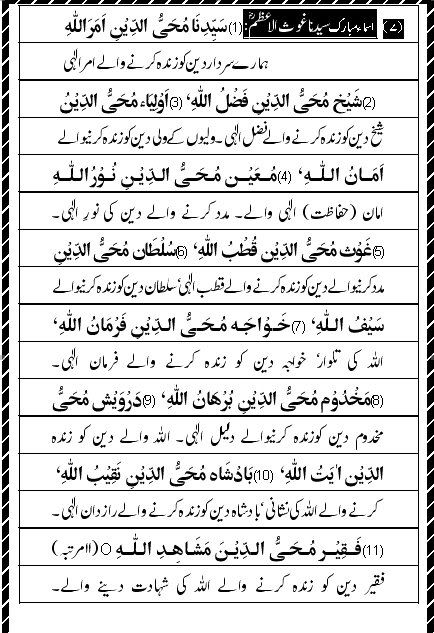 (۷) اسماء مبارک سیدنا غوث الاعظمؓ: (1) سَیِّدِنَا مُحَیُّ الدِّیْنِ اَمَرَاللهِ
ہمارے سردار دین کو زندہ کرنے والے امرالٰہی
(2) شَیْخْ مُحَیُّ الدِّیْنِ فَضْلُ اللهِ، (3) اَوْلِیَاء مُحَیُّ الدِّیْنُ
شیخ دین کو زندہ کرنے والے فضل الٰہی۔ ولیوں کے ولی دین کو زندہ کرنیوالے
اَمَانُ اللهِ، (4) مُعَیْن مُحَیُّ الدِّیْنِ نُوْرُ اللهِ
امان (حفاظت) الٰہی والے۔ مدد کرنے والے دین کی نورِ الٰہی۔
(5) غَوْث مُحَیُّ الدِّیْنِ قُطْبُ اللهِ، (6) سُلْطَان مُحَیُّ الدِّیْنِ
مدد کرنیوالے دین کو زندہ کرنے والے قطب الٰہی، سلطان دین کو زندہ کرنیوالے
سَیْفُ اللهِ، (7) خَوَاجَہ مُحَیُّ الدِّیْنِ فَرْمَانُ اللهِ،
اللہ کی تلوار، خواجہ دین کو زندہ کرنے والے فرمان الٰہی۔
(8) مَخْدُوْم مُحَیُّ الدِّیْنِ بُرْهَانُ اللهِ، (9) دَرْوَیْش مُحَیُّ
مخدوم دین کو زندہ کرنیوالے دلیل الٰہی۔ اللہ والے دین کو زندہ
الدِّیْنِ اٰیَتُ اللهِ، (10) بَادْشَاه مُحَیُّ الدِّیْنِ نَقِیْبُ اللهِ،
کرنے والے اللہ کی نشانی، بادشاہ دین کو زندہ کرنے والے رازدان الٰہی۔
(11) فَقِیْر مُحَیُّ الدِّیْنَ مَشَاهِدِ اللهِ ○ (۱۱ مرتبہ)
فقیر دین کو زندہ کرنے والے اللہ کی شہادت دینے والے۔